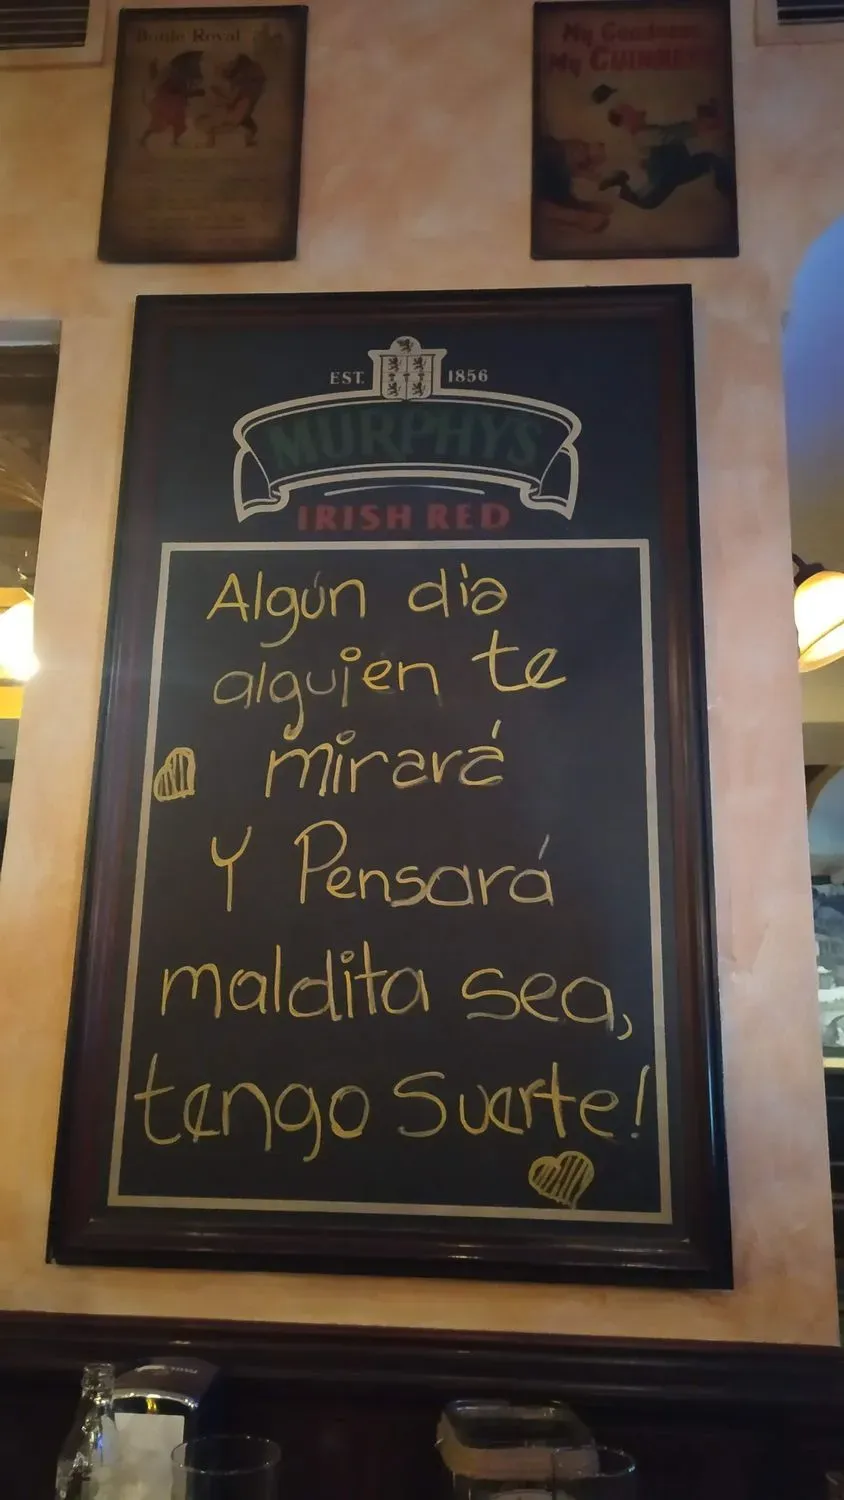 Battle Royal
My Goodness
My GUINNESS
EST. 1856
MURPHY'S
IRISH RED
Algún dia
alguien te
mirará
Y Pensará
maldita sea,
tengo suerte!